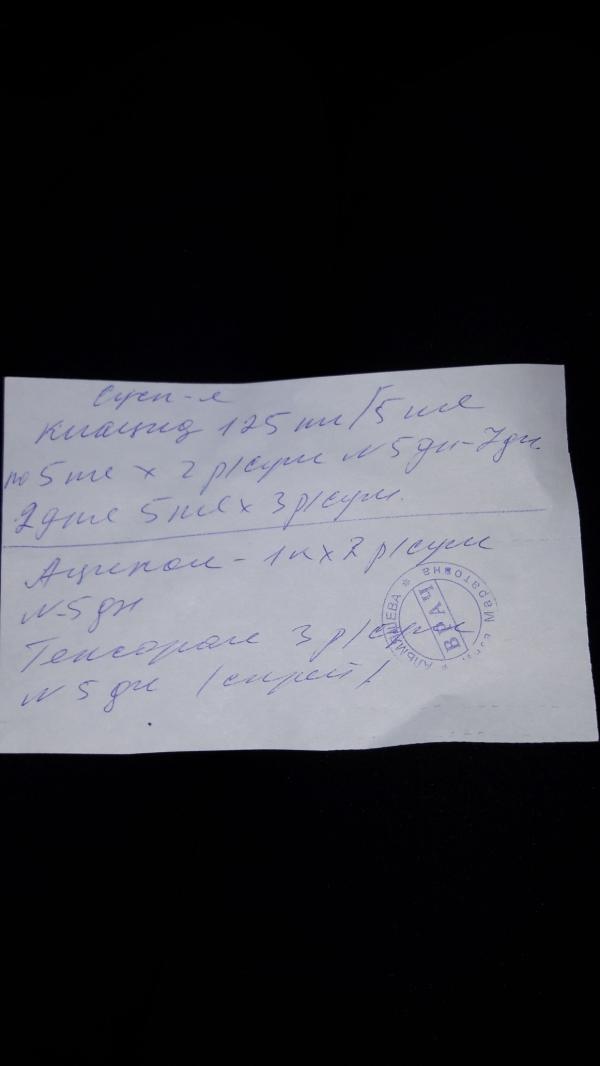 Сусп-я
Клацид 125 мл/5 мл
по 5 мл х 2 р/сут N 5 дн-7дн.
2 дня 5 мл х 3 р/сут.
Аципол - 1к х 2 р/сут
N-5 дн
Гексорал 3 р/сут
N 5 дн (спрей)
ВРАЧ
Маратовна